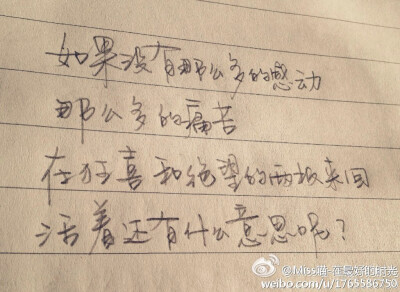 如果没有那么多的感动
那么多的痛苦
在狂喜和绝望的两极来回
活着还有什么意思呢?
weibo.com/u/1765586750